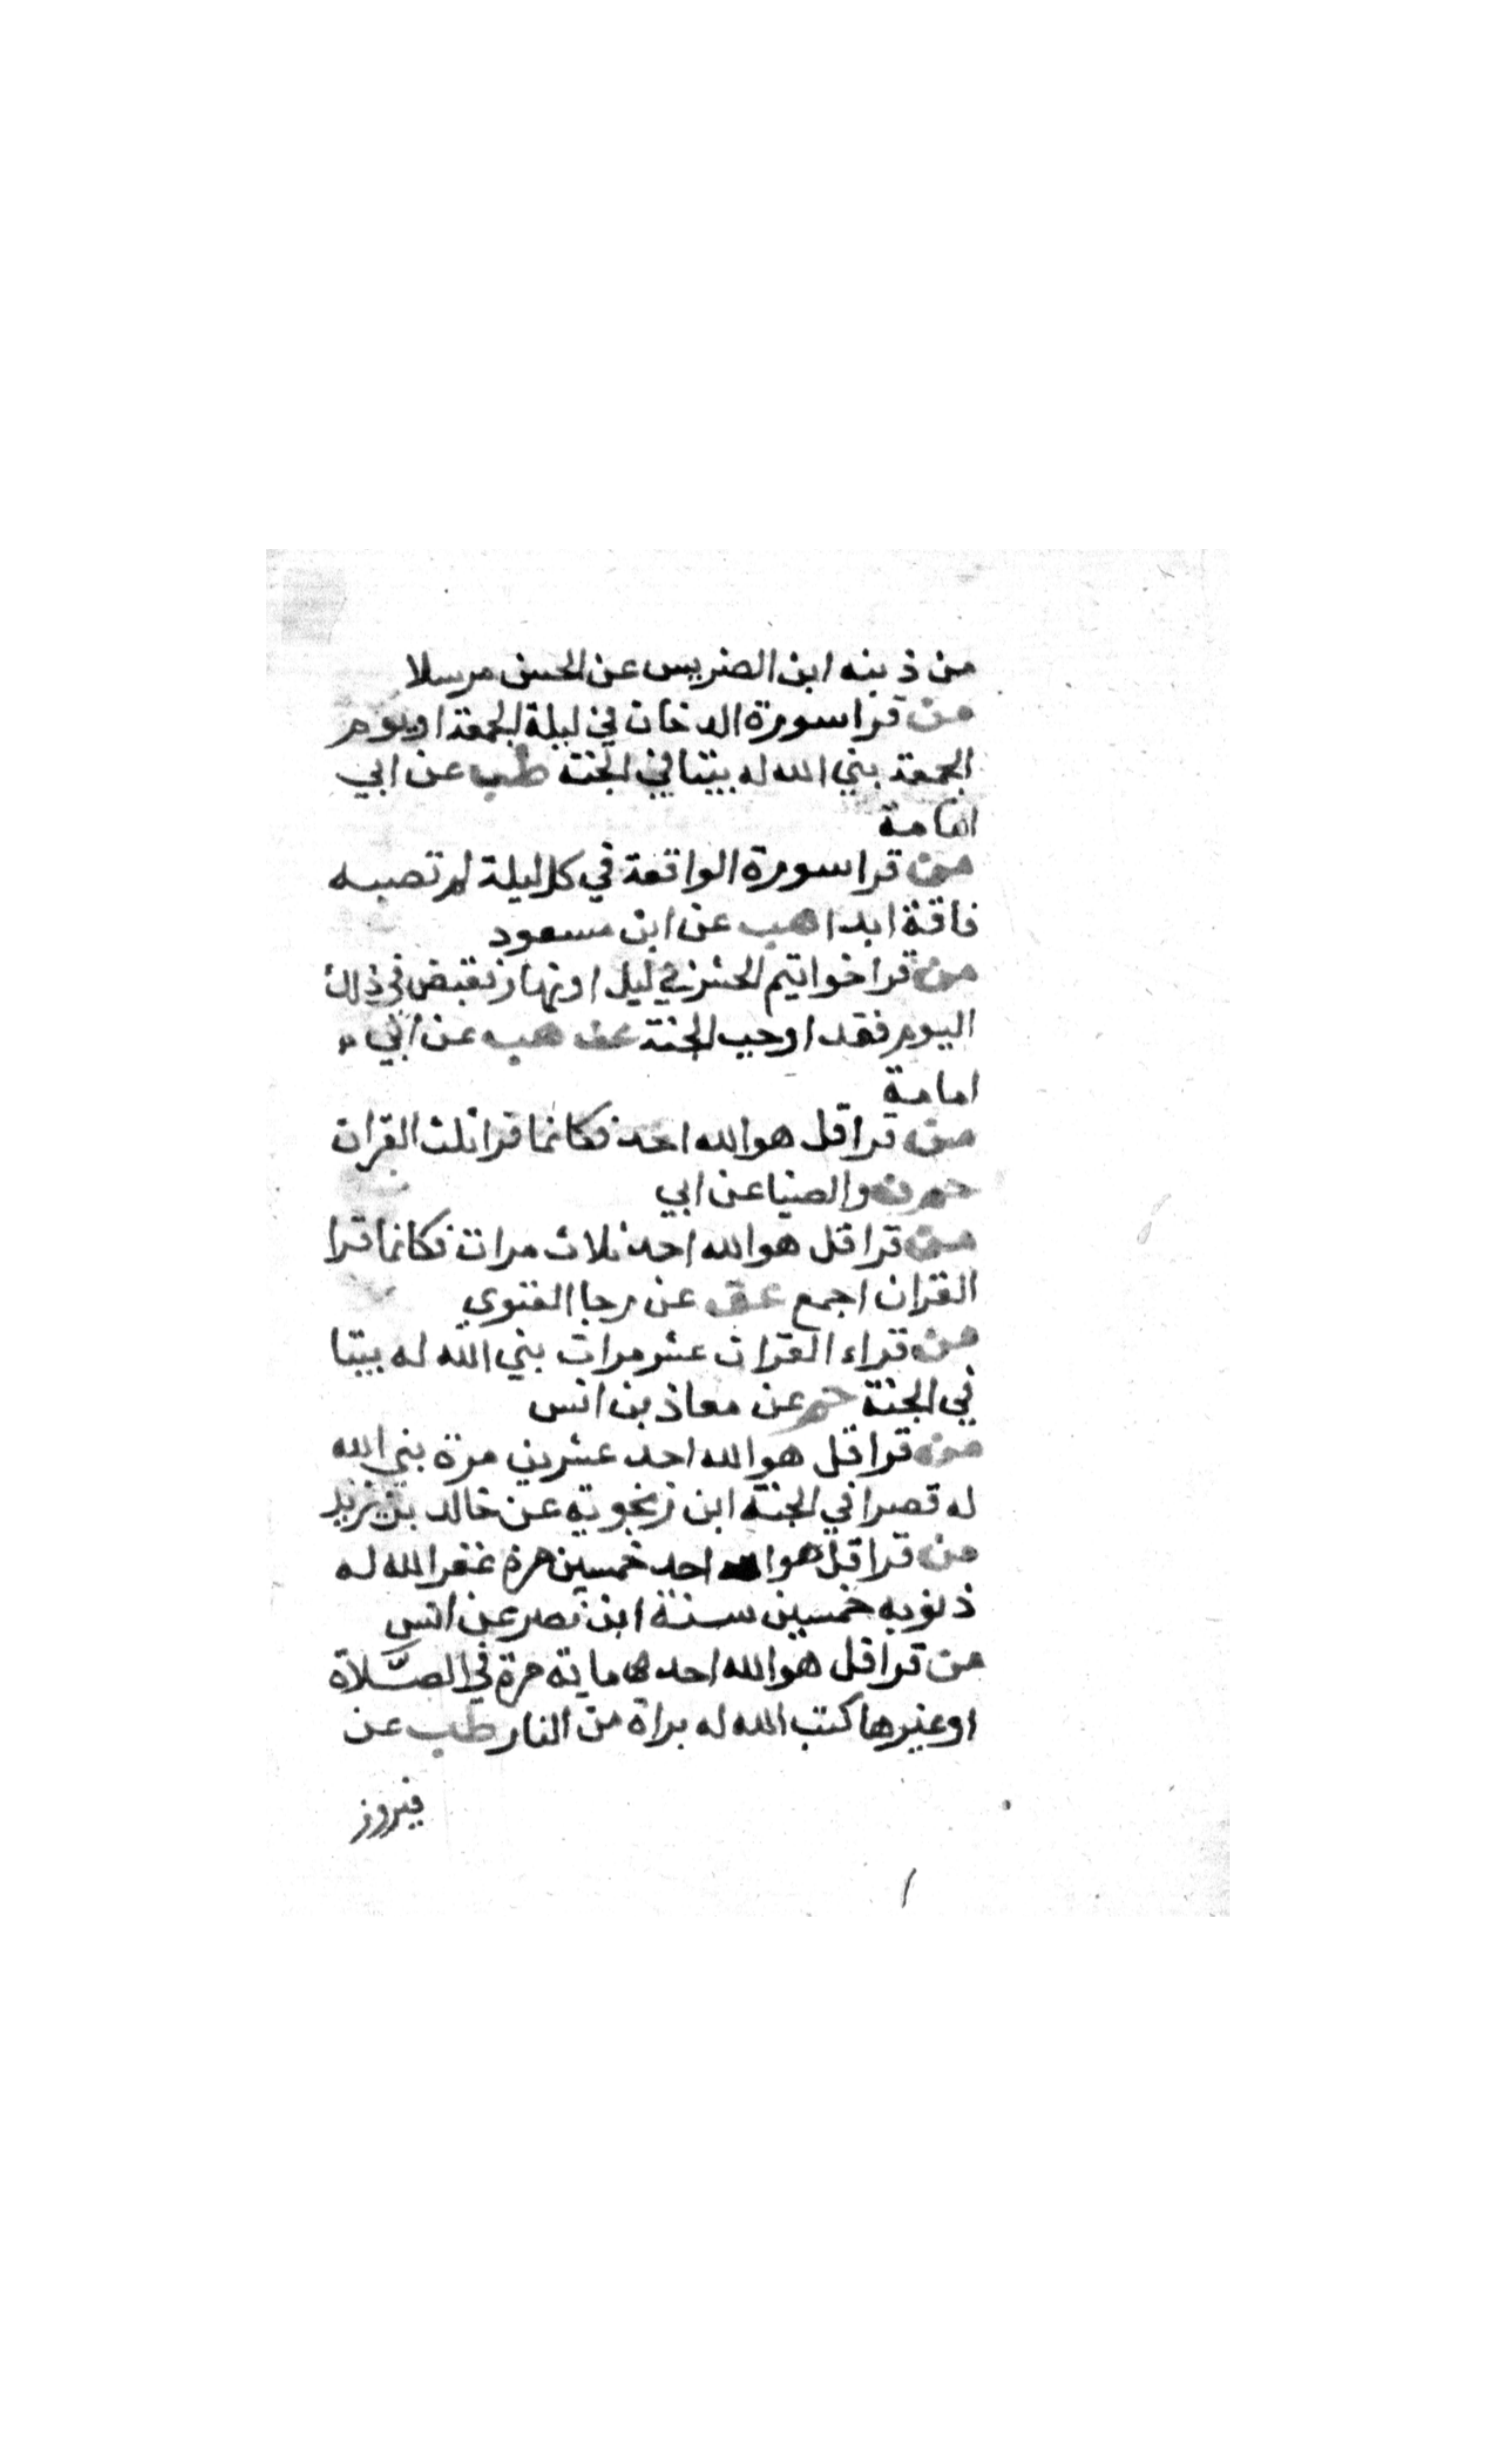 من ذنبه ابن الضريس عن الحسن مرسلا
من قرا سورة الدخان في ليلة الجمعة او يوم
الجمعة بني الله له بيتا في الجنة طب عن ابي
امامة
من قرا سورة الواقعة في كل ليلة لم تصبه
فاقة ابدا هب عن ابن مسعود
من قرا خواتيم الحشر في ليل او نهار فقبض في ذلك
اليوم فقد اوجب الجنة عد هب عن ابي
امامة
من قرا قل هو الله احد فكانما قرا ثلث القران
حم ن والضيا عن ابي
من قرا قل هو الله احد ثلاث مرات فكانما قرا
القران اجمع عق عن رجا الغنوي
من قراء القران عشر مرات بني الله له بيتا
في الجنة حم عن معاذ بن انس
من قرا قل هو الله احد عشرين مرة بني الله
له قصرا في الجنة ابن زنجويه عن خالد بن يزيد
من قرا قل هو الله احد خمسين مرة غفر الله له
ذنوبه خمسين سنة ابن نصر عن انس
من قرا قل هو الله احد ماية مرة في الصلاة
او غيرها كتب الله له براة من النار طب عن
فيروز